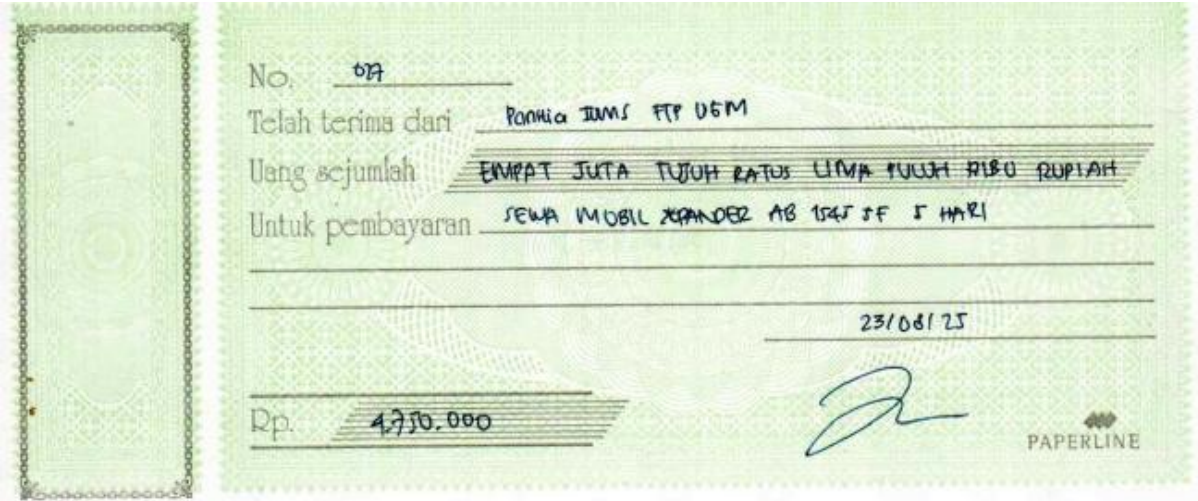 No. 027
Telah terima dari Panitia IUMS FTP UGM
Uang sejumlah EMPAT JUTA TUJUH RATUS LIMA PULUH RIBU RUPIAH
Untuk pembayaran SEWA MOBIL XPANDER AB 1545 SF 5 HARI
23/08/25
Rp. 4.750.000
PAPERLINE